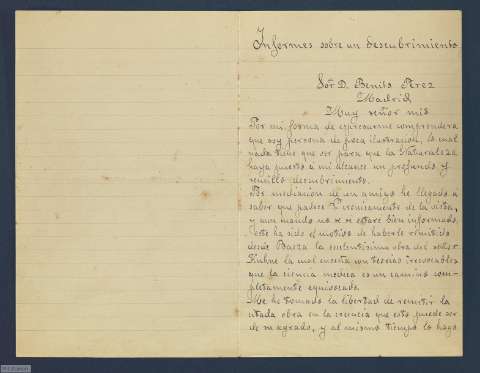 Informes sobre un descubrimiento
Sor D. Benito Perez
Madrid
Muy señor mio
Por mi forma de espresarme comprendera
que soy persona de poca ilustracion, lo cual
nada tiene que ser para que la Naturaleza
haya puesto a mi alcance un profundo y
sencillo descubrimiento.
Por mediacion de un amigo he llegado a
saber que padece V cronicamente de la vista,
y aun cuando no se si estaré bien informado,
este ha sido el motivo de haberle remitido
desde Baeza la excelentisima obra del señor
Kuhne la cual enseña con teorias irrevocables
que la ciencia medica es un camino com-
pletamente equivocado.
Me he tomado la libertad de remitir la
citada obra en la creencia que esto puede ser
de su agrado, y al mismo tiempo lo hago